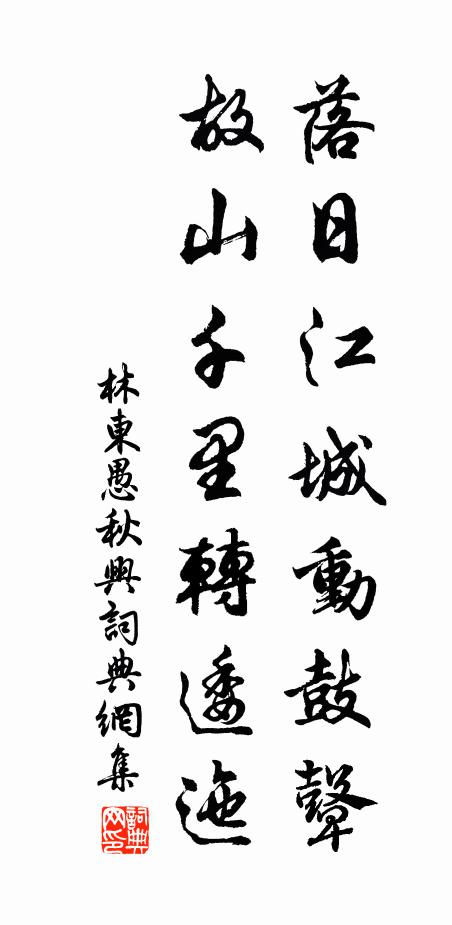 落日江城動鼓鼙
故山千里轉逶迤
林東愚秋興詞典網集
詞典网印